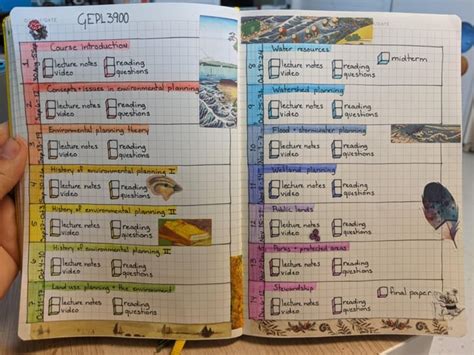 GEPL3900
1
Course introduction
lecture notes
reading
video
questions
2
Concepts + issues in environmental planning
lecture notes
reading
video
questions
3
Environmental planning theory
lecture notes
reading
video
questions
4
History of environmental planning I
lecture notes
reading
video
questions
5
History of environmental planning II
lecture notes
reading
video
questions
6
History of environmental planning III
lecture notes
reading
video
questions
7
Land use planning + the environment
lecture notes
reading
video
questions
Water resources
lecture notes
reading
midterm
video
questions
Watershed planning
lecture notes
reading
video
questions
10
Flood + stormwater planning
lecture notes
reading
video
questions
11
Wetland planning
lecture notes
reading
video
questions
12
Public lands
lecture notes
reading
video
questions
13
Parks + protected areas
lecture notes
reading
video
questions
14
Stewardship
lecture notes
reading
final paper
video
questions